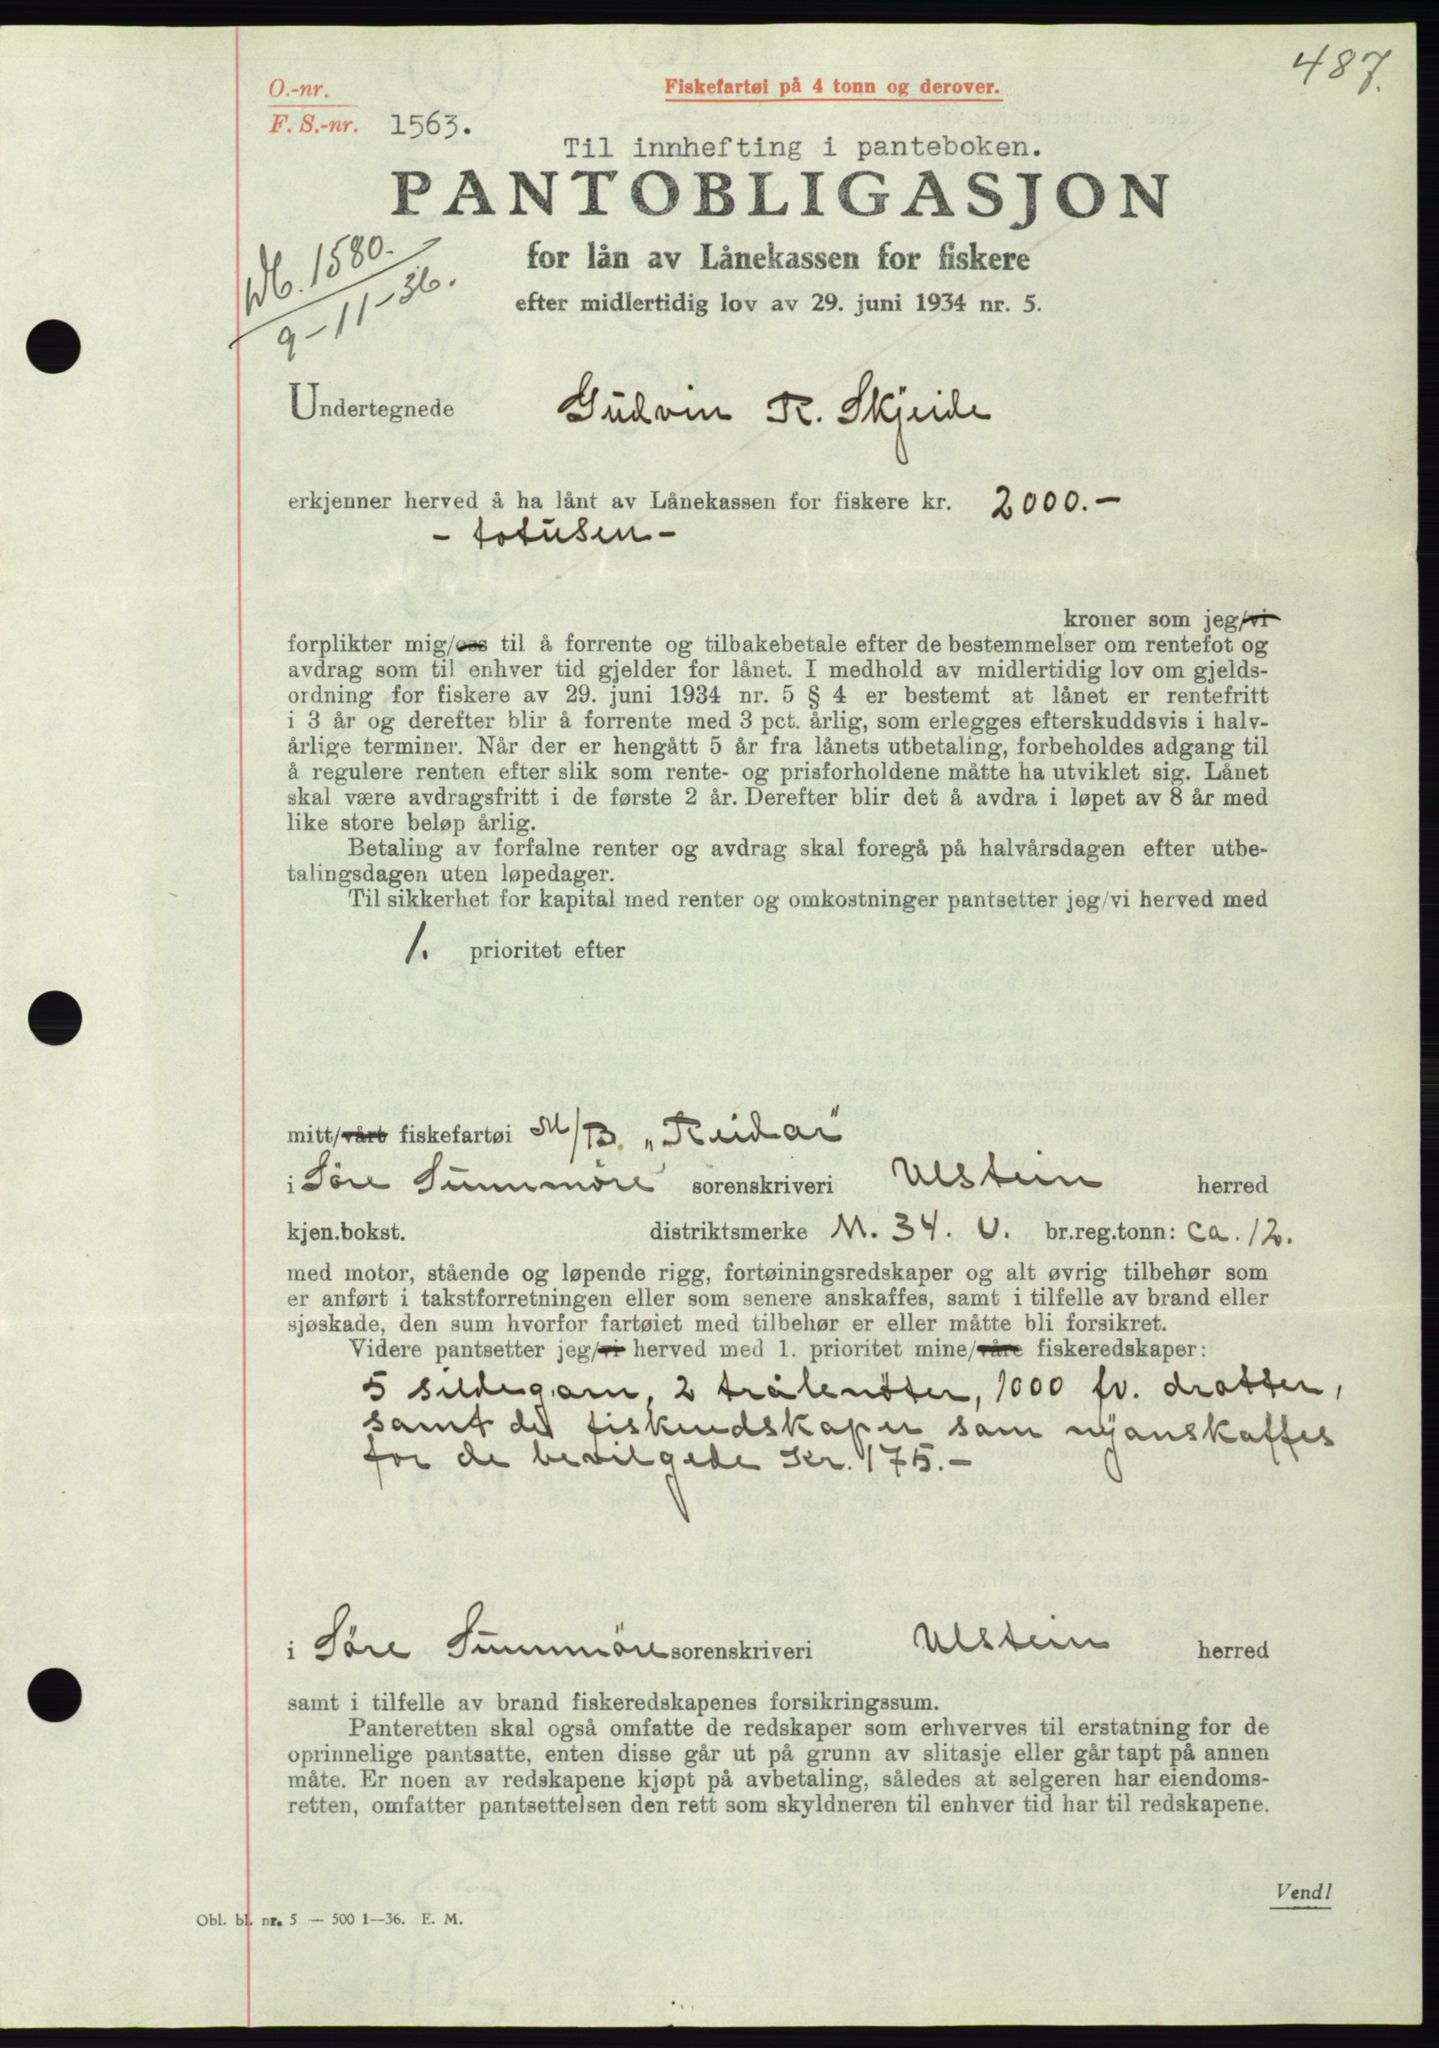 487.
O.-nr.
Fiskefartøi på 4 tonn og derover.
F. S.-nr. 1563.
Til innhefting i panteboken.
PANTOBLIGASJON
for lån av Lånekassen for fiskere
efter midlertidig lov av 29. juni 1934 nr. 5.
1580.
9-11-36.
Undertegnede Gudvin R. Skjeide
erkjenner herved å ha lånt av Lånekassen for fiskere kr. 2000.-
- totusen -
kroner som jeg/vi
forplikter mig/oss til å forrente og tilbakebetale efter de bestemmelser om rentefot og
avdrag som til enhver tid gjelder for lånet. I medhold av midlertidig lov om gjelds-
ordning for fiskere av 29. juni 1934 nr. 5 § 4 er bestemt at lånet er rentefritt
i 3 år og derefter blir å forrente med 3 pct. årlig, som erlegges efterskuddsvis i halv-
årlige terminer. Når der er hengått 5 år fra lånets utbetaling, forbeholdes adgang til
å regulere renten efter slik som rente- og prisforholdene måtte ha utviklet sig. Lånet
skal være avdragsfritt i de første 2 år. Derefter blir det å avdra i løpet av 8 år med
like store beløp årlig.
Betaling av forfalne renter og avdrag skal foregå på halvårsdagen efter utbe-
talingsdagen uten løpedager.
Til sikkerhet for kapital med renter og omkostninger pantsetter jeg/vi herved med
1. prioritet efter
mitt/vårt fiskefartøi M/B. „Reidar"
i Søre Sunnmöre sorenskriveri Ulstein herred
kjen.bokst. distriktsmerke M. 34. U. br.reg.tonn: ca. 12.
med motor, stående og løpende rigg, fortøiningsredskaper og alt øvrig tilbehør som
er anført i takstforretningen eller som senere anskaffes, samt i tilfelle av brand eller
sjøskade, den sum hvorfor fartøiet med tilbehør er eller måtte bli forsikret.
Videre pantsetter jeg/vi herved med 1. prioritet mine/våre fiskeredskaper:
5 sildegarn, 2 trålenøter, 1000 fv. dratter,
samt de fiskeredskaper som nyanskaffes
for de bevilgede kr. 175.-
i Søre Sunnmöre sorenskriveri Ulstein herred
samt i tilfelle av brand fiskeredskapenes forsikringssum.
Panteretten skal også omfatte de redskaper som erhverves til erstatning for de
oprinnelige pantsatte, enten disse går ut på grunn av slitasje eller går tapt på annen
måte. Er noen av redskapene kjøpt på avbetaling, således at selgeren har eiendoms-
retten, omfatter pantsettelsen den rett som skyldneren til enhver tid har til redskapene.
Vend!
Obl. bl. nr. 5 — 500 1—36. E. M.